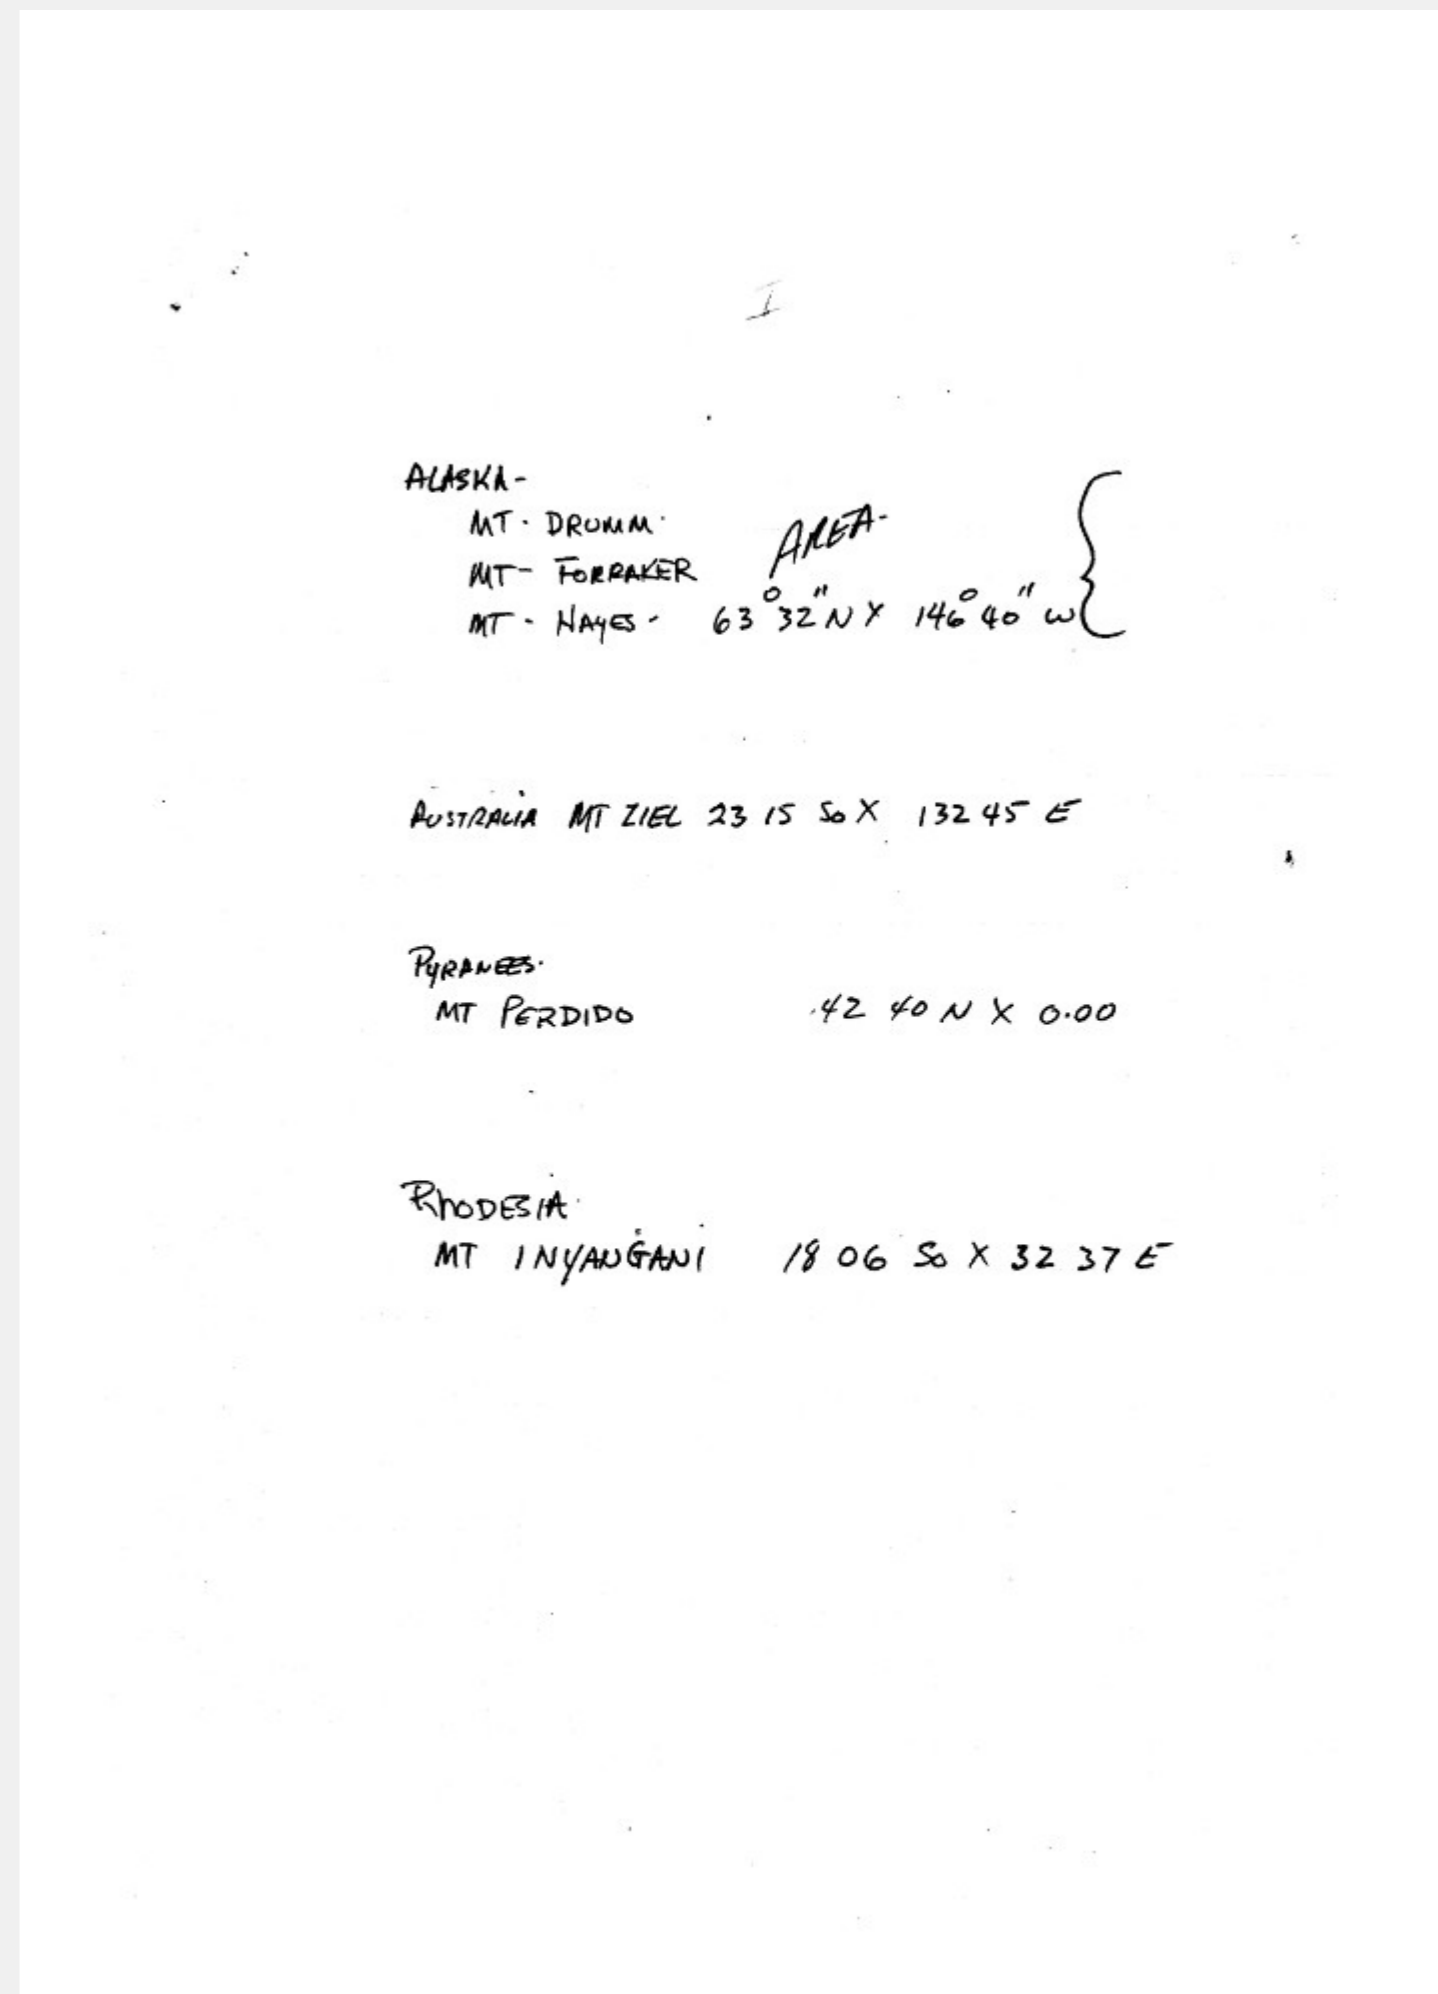 I
ALASKA-
MT. DRUMM.
AREA-
MT- FORRAKER
MT - HAYES - 63°32"N X 146°40"W
AUSTRALIA MT ZIEL 23 15 So X 132 45 E
PYRANEES.
MT PERDIDO 42 40 N X 0.00
RHODESIA
MT INYANGANI 18 06 So X 32 37 E